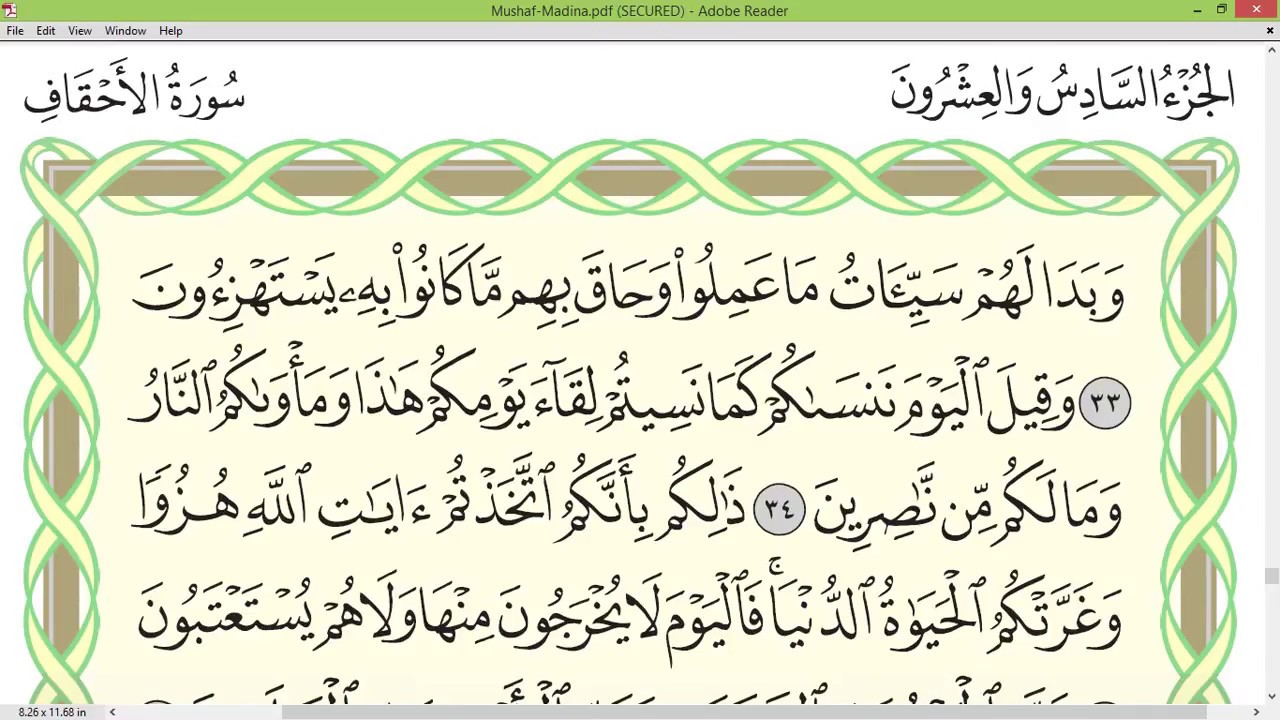 Mushaf-Madina.pdf (SECURED) - Adobe Reader
File Edit View Window Help
الجُزْءُ السَّادِسُ وَالعِشْرُونَ
سُورَةُ الأَحْقَافِ
وَبَدَا لَهُمْ سَيِّـَٔاتُ مَا عَمِلُوا۟ وَحَاقَ بِهِم مَّا كَانُوا۟ بِهِۦ يَسْتَهْزِءُونَ
٣٣ وَقِيلَ ٱلْيَوْمَ نَنسَىٰكُمْ كَمَا نَسِيتُمْ لِقَآءَ يَوْمِكُمْ هَٰذَا وَمَأْوَىٰكُمُ ٱلنَّارُ
وَمَا لَكُم مِّن نَّٰصِرِينَ ٣٤ ذَٰلِكُم بِأَنَّكُمُ ٱتَّخَذْتُمْ ءَايَٰتِ ٱللَّهِ هُزُوًا
وَغَرَّتْكُمُ ٱلْحَيَوٰةُ ٱلدُّنْيَا ۚ فَٱلْيَوْمَ لَا يُخْرَجُونَ مِنْهَا وَلَا هُمْ يُسْتَعْتَبُونَ
8.26 x 11.68 in